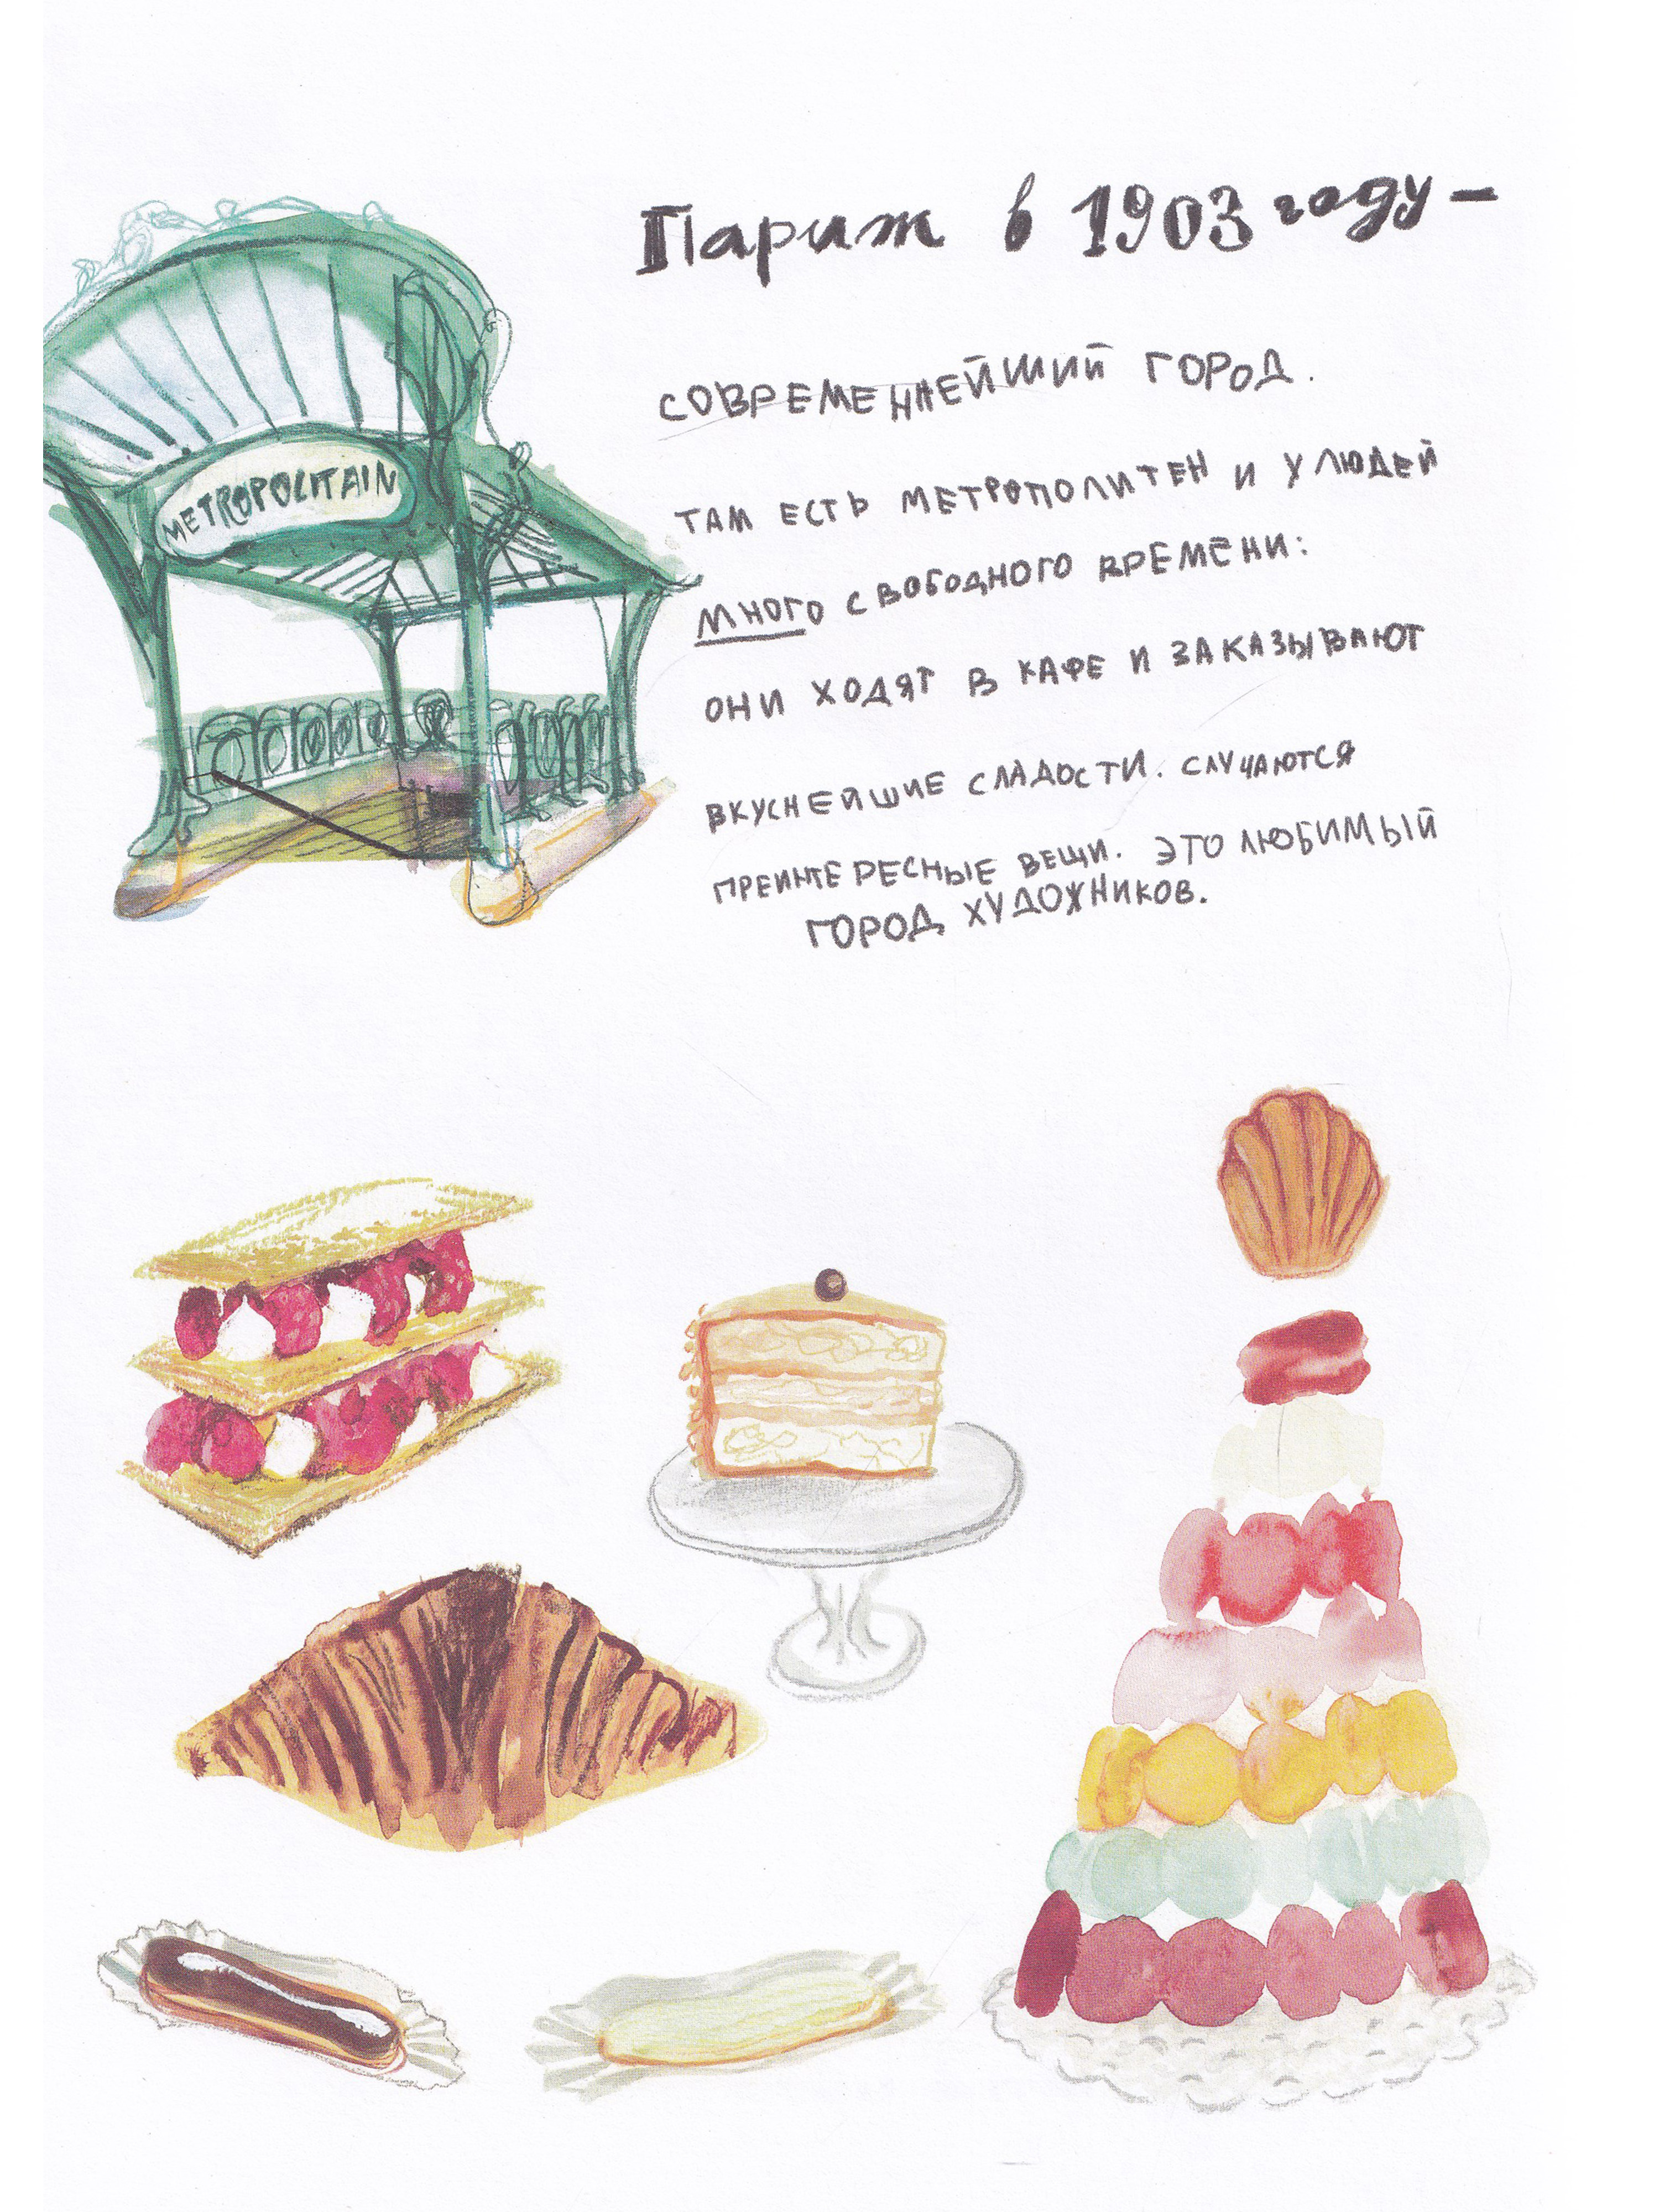 METROPOLITAIN
Париж в 1903 году —
СОВРЕМЕННЕЙШИЙ ГОРОД.
ТАМ ЕСТЬ МЕТРОПОЛИТЕН И У ЛЮДЕЙ
МНОГО СВОБОДНОГО ВРЕМЕНИ:
ОНИ ХОДЯТ В КАФЕ И ЗАКАЗЫВАЮТ
ВКУСНЕЙШИЕ СЛАДОСТИ. СЛУЧАЮТСЯ
ПРЕИНТЕРЕСНЫЕ ВЕЩИ. ЭТО ЛЮБИМЫЙ
ГОРОД ХУДОЖНИКОВ.